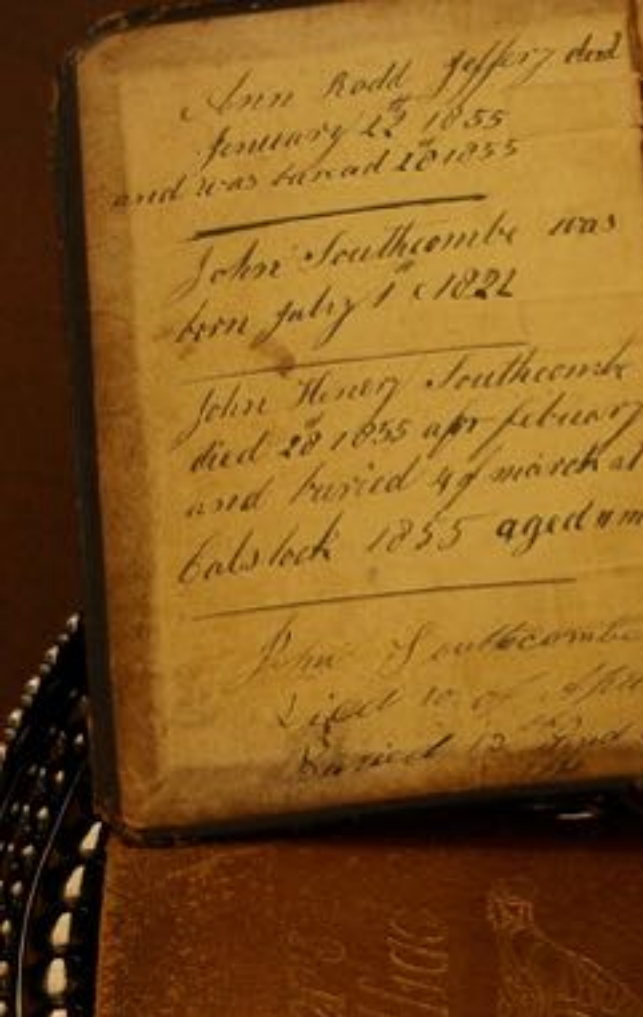 Ann Rodd Jeffery died
January 22 1855
and was buread 28 1855
John Southcombe was
born july 1st 1822
John Henery Southcombe
died 28 1855 febuary
and buried 4 of march at
Calstock 1855 aged 11 m
John Southcombe
Died 10 of
Buried 13